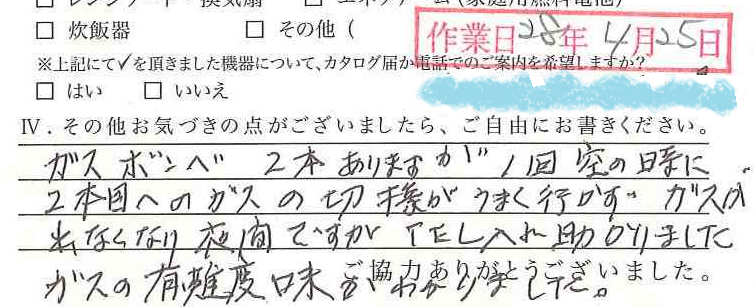 □ レンジフード・換気扇 □ エネファーム(家庭用燃料電池)
□ 炊飯器 □ その他 (
作業日28年4月25日
※上記にて✓を頂きました機器について、カタログ届か電話でのご案内を希望しますか?
□ はい □ いいえ
Ⅳ. その他お気づきの点がございましたら、ご自由にお書きください。
ガスボンベ 2本ありますが 1回空の時に
2本目へのガスの切換がうまく行かず ガスが
出なくなり夜間ですがTEL入れ助かりました
ガスの有難度味がわかりました。
ご協力ありがとうございました。